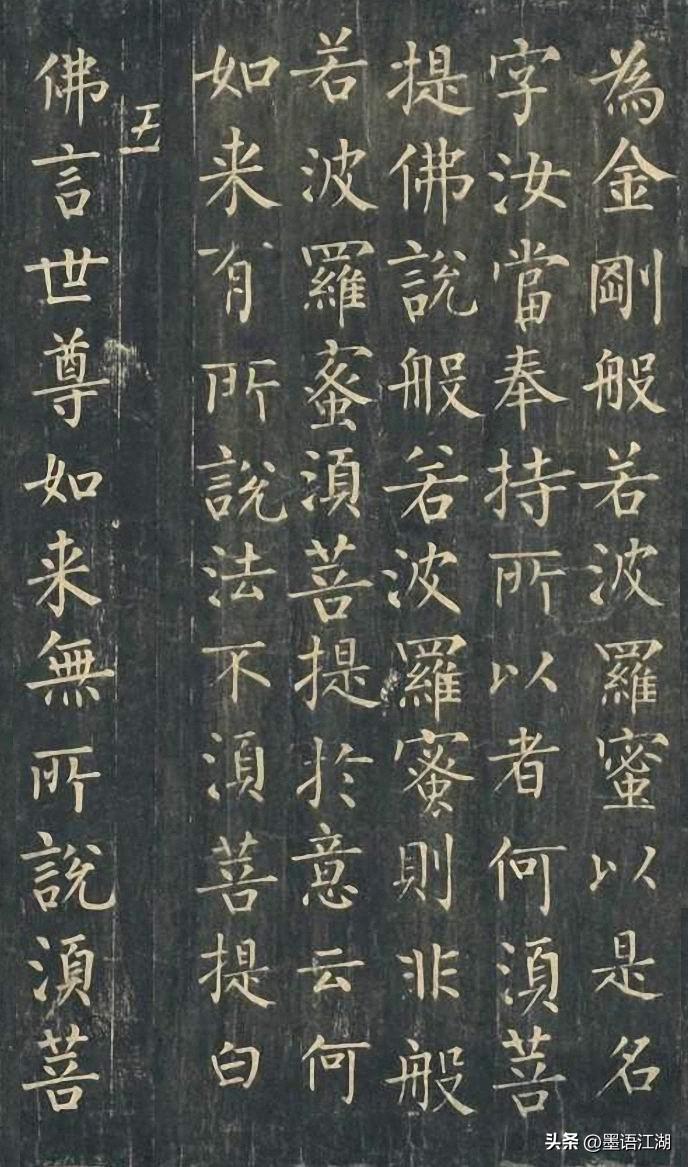 為金剛般若波羅蜜以是名
字汝當奉持所以者何湏菩
提佛說般若波羅蜜則非般
若波羅蜜湏菩提於意云何
如来有所說法不湏菩提白
佛言世尊如来無所說湏菩
头条 @墨语江湖